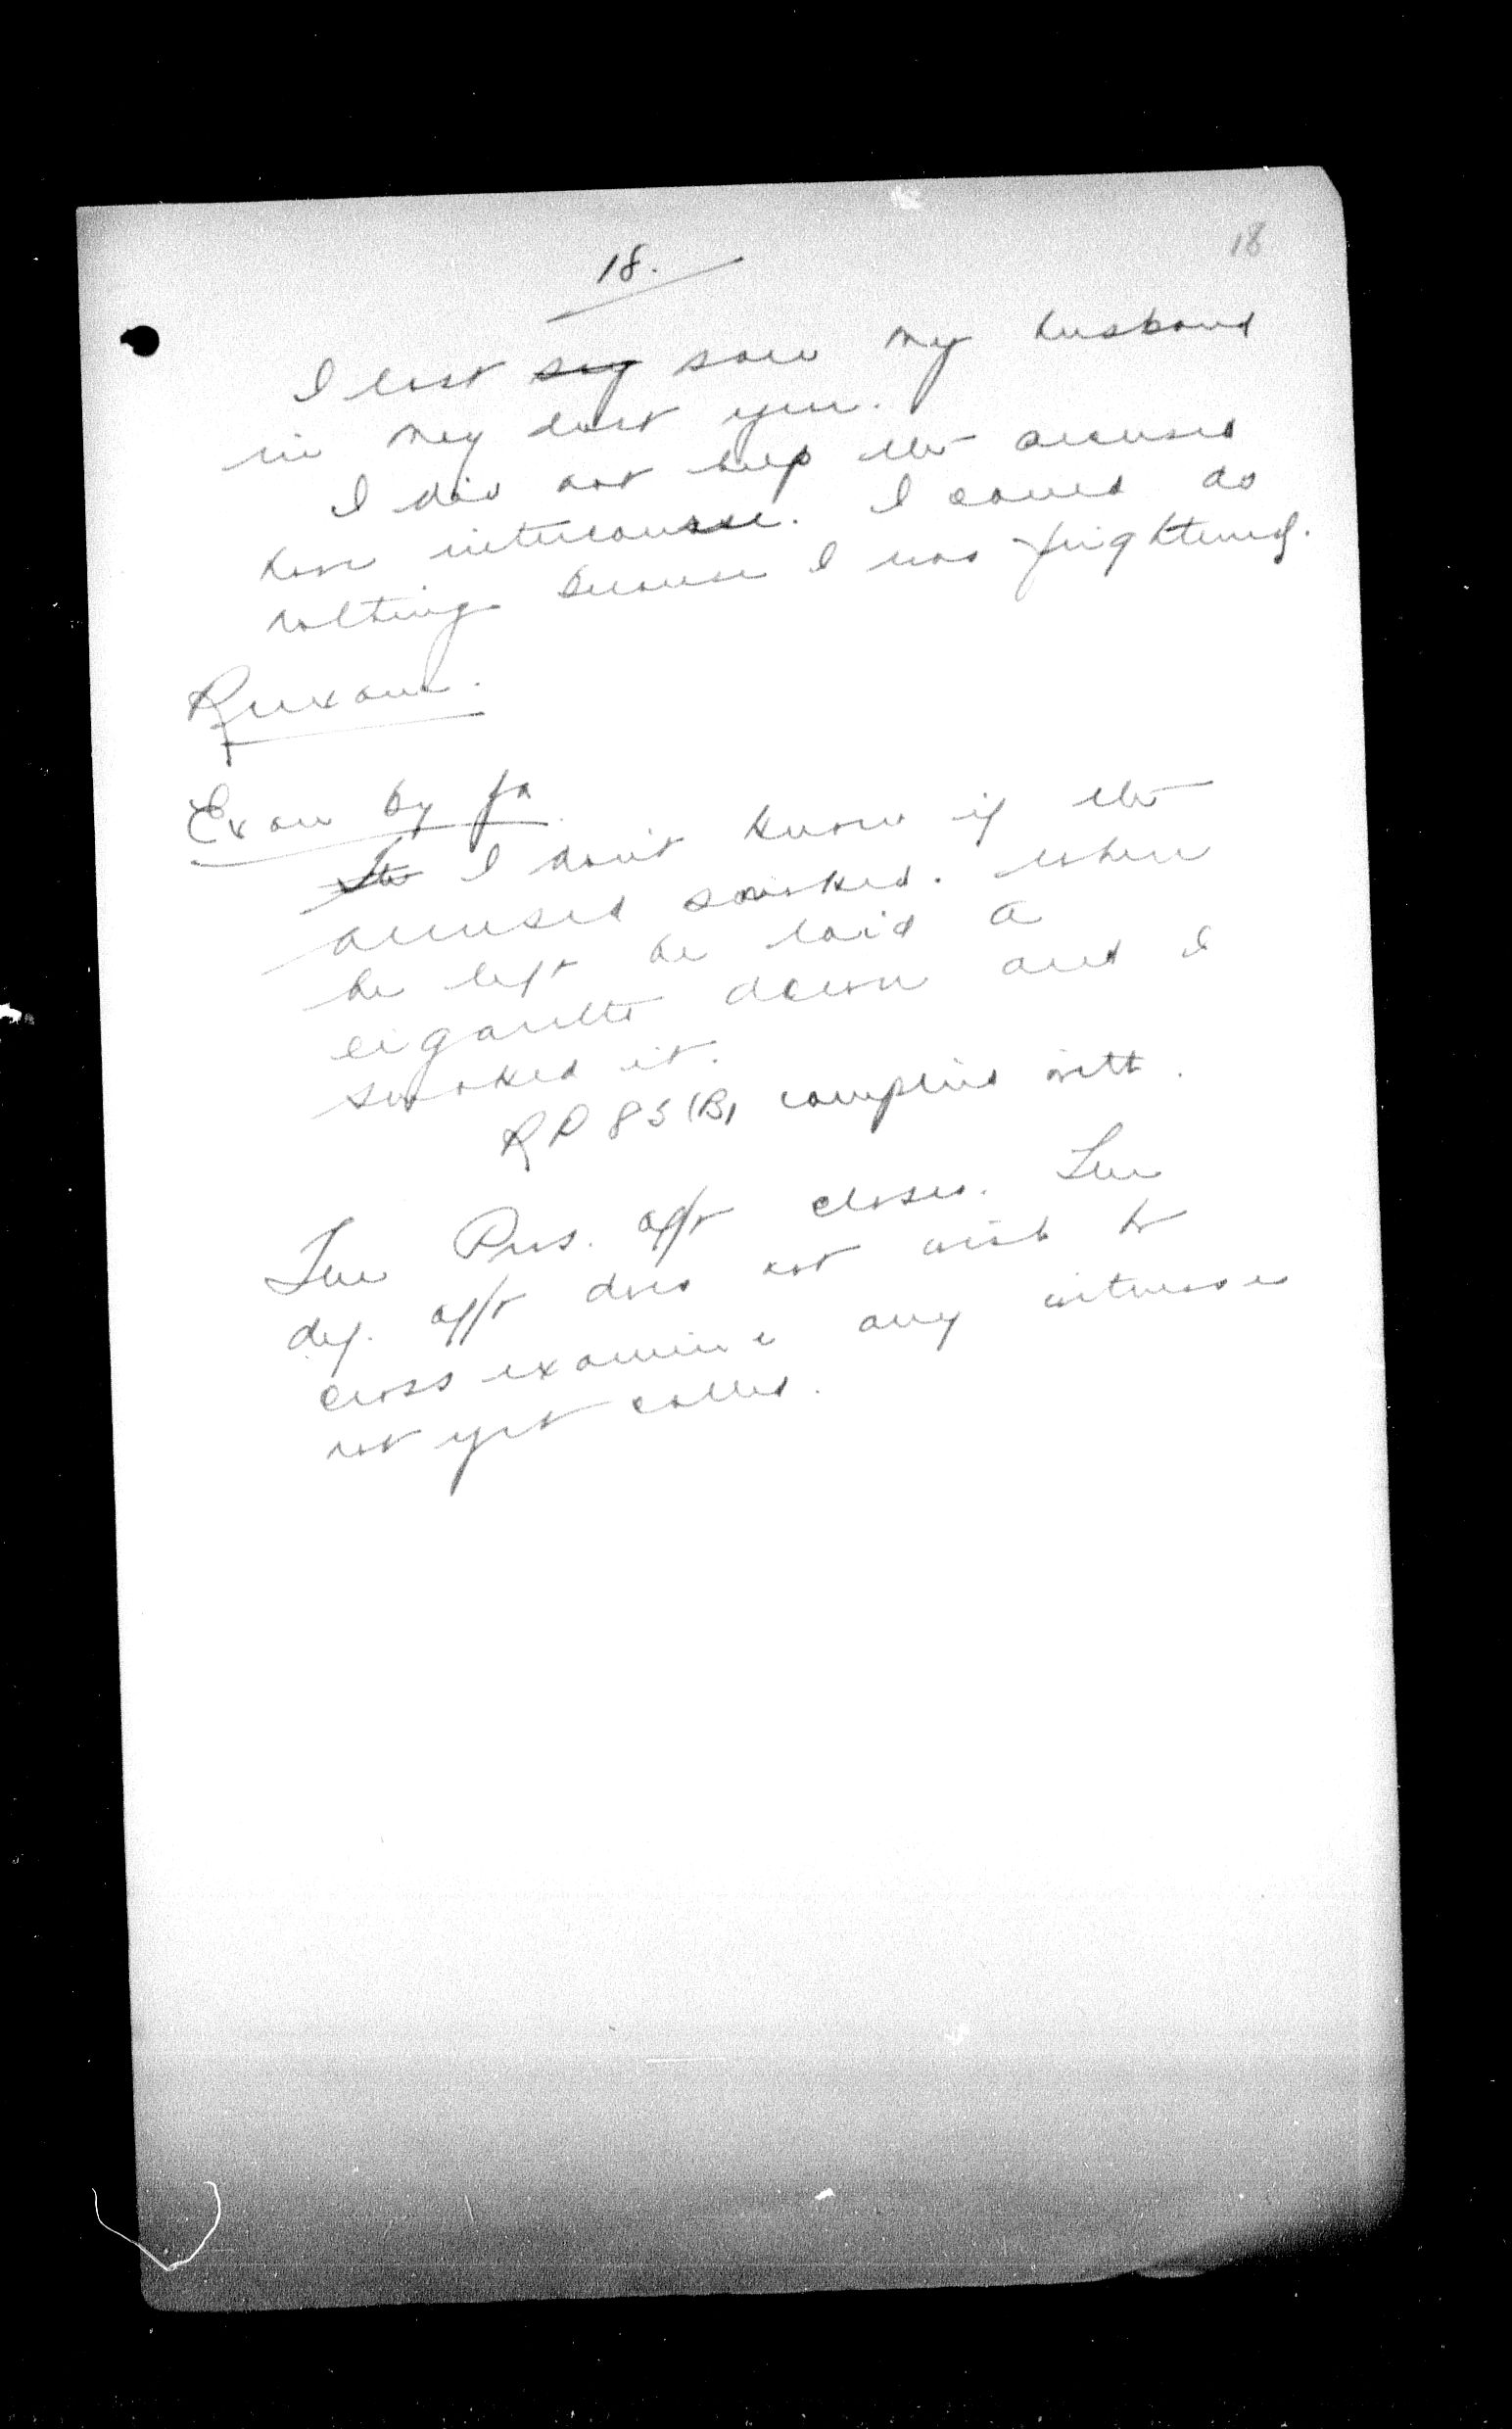 18.
18
I last say saw my husband
in May last year.
I did not help the accused
have intercourse. I could do
nothing because I was frightened.
Reexam.
Exam by Ja
The I don't know if the
accused smoked. When
he left he laid a
cigarette down and I
smoked it.
RP 83 (B) complied with.
The Pros. offr closes. The
def. offr does not wish to
cross examine any witnesses
not yet called.